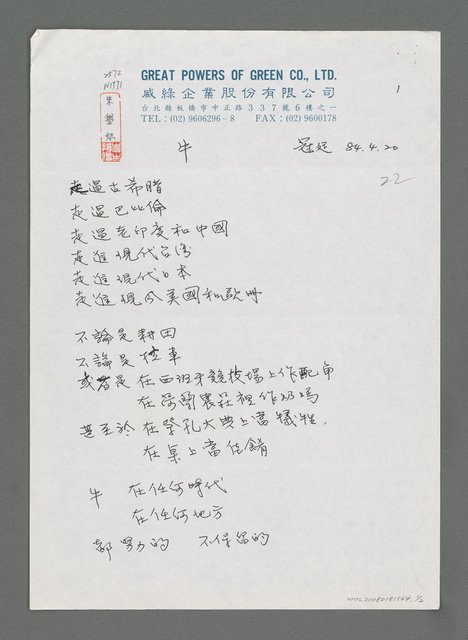 GREAT POWERS OF GREEN CO., LTD.
威綠企業股份有限公司
台北縣板橋市中正路337號6樓之一
TEL：(02) 9606296－8　FAX：(02) 9600178
1
牛
冠廷 84.4.20
22
走過古希腊
走過巴比倫
走過老印度和中國
走進現代台湾
走進現代日本
走進現代美國和歐洲
不論是耕田
不論是拉車
或者是 在西班牙競技場上作配角
在荷蘭農莊裡作奶媽
甚至於 在祭孔大典上當犧牲，
在桌上當佳餚
牛 在任何時代
在任何地方
都 努力的 不保留的